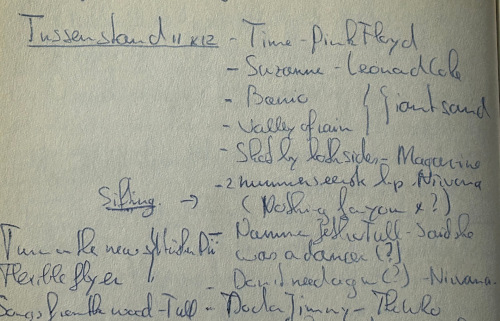 Tussenstand 11 x 12 - Time - Pink Floyd
- Suzanne - Leonard
- Barrio } Giant sand
- Valley of rain
- Shot by both sides - Magazine
Sifting → - 2 nummers eerste l.p. Nirvana
( for you & ?)
Turn on the news Jethro Tull - Said she
Flexible flyer was a dancer (?)
- (?) - Nirvana
Songs from the wood - Tull - Doctor Jimmy - The Who